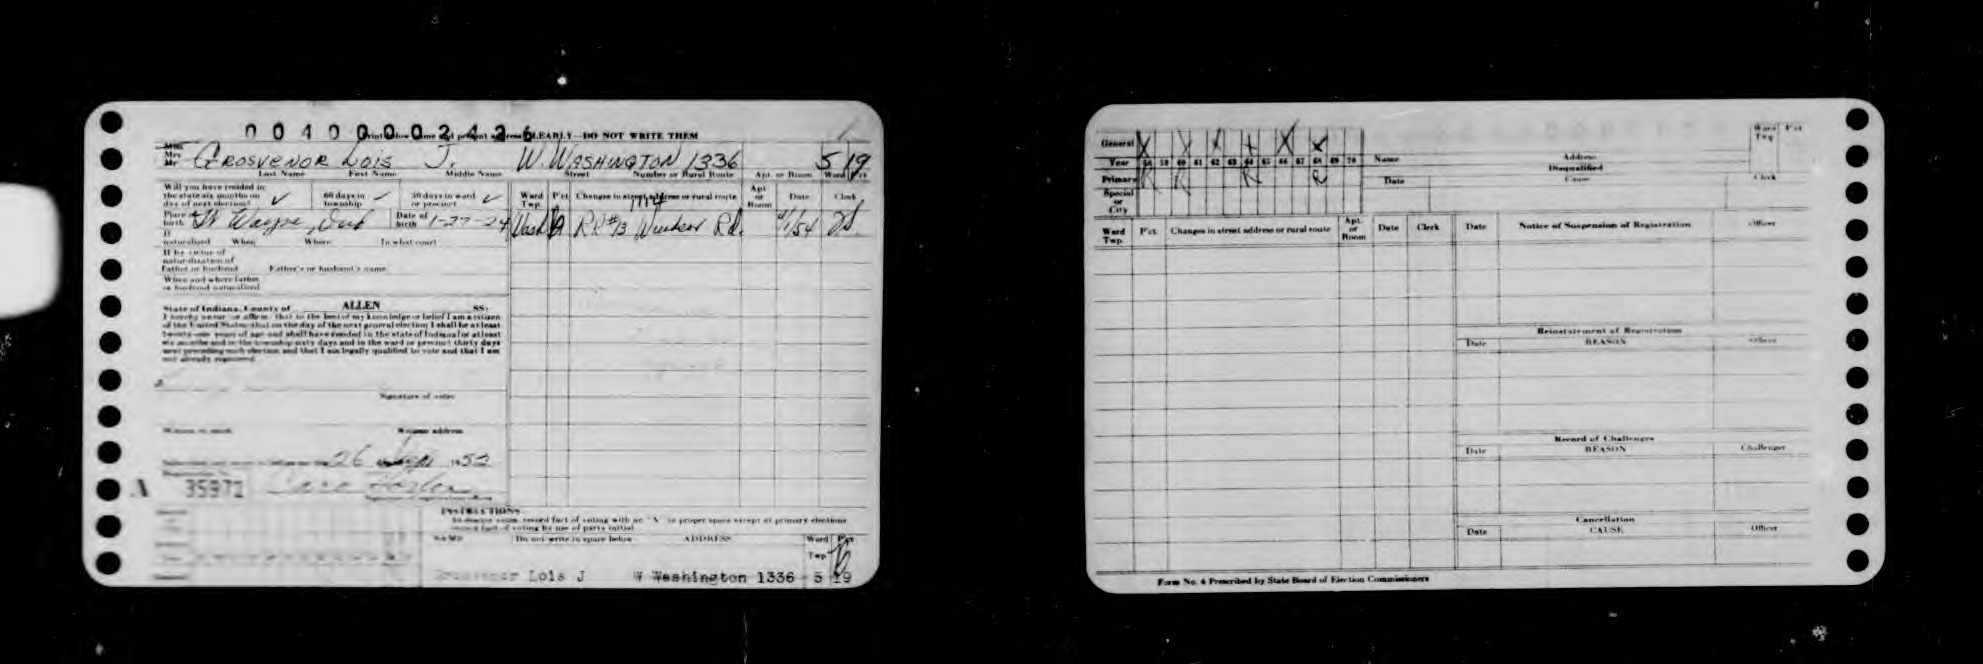 0 0 4 0 0 0 0 2 4 2 6
Print below name and present address CLEARLY—DO NOT WRITE THEM
Miss
Mrs.
Mr
GROSVENOR LOIS J. W. WASHINGTON 1336 5 19
Last Name First Name Middle Name Street Number or Rural Route Apt. or Room Ward Pct
Will you have resided in the state six months on day of next election? ✓ 60 days in township ✓ 30 days in ward or precinct ✓
Ward Twp. P'ct Changes in street address or rural route Apt or Room Date Clerk
Place of birth Ft Wayne, Ind Date of birth 1-27-24
Wash A RR#13 1114 Windsor Rd. /1/54
If naturalized When Where In what court
If by virtue of naturalization of Father or husband Father's or husband's name
When and where father or husband naturalized
State of Indiana, County of ALLEN SS:
I hereby swear or affirm that to the best of my knowledge or belief I am a citizen
of the United States; that on the day of the next general election I shall be at least
twenty-one years of age and shall have resided in the state of Indiana for at least
six months and in the township sixty days and in the ward or precinct thirty days
next preceding such election and that I am legally qualified to vote and that I am
not already registered
Signature of voter
Witness to mark Witness address
26 1952
A 35971
INSTRUCTIONS
record fact of voting with an "X" in proper space except at primary elections
record fact of voting by use of party initial
NAME Do not write in space below ADDRESS Ward Twp P'ct
Grosvenor Lois J W Washington 1336 5 19
General X X X X X
Year 58 59 60 61 62 63 64 65 66 67 68 69 70
Primary R R R R
Special or City
Name Address Ward Twp P'ct
Disqualified
Date Cause Clerk
Ward Twp. P'ct Changes in street address or rural route Apt. or Room Date Clerk
Date Notice of Suspension of Registration Officer
Reinstatement of Registration
Date REASON Officer
Record of Challenges
Date REASON Challenger
Cancellation
Date CAUSE Officer
Form No. 4 Prescribed by State Board of Election Commissioners